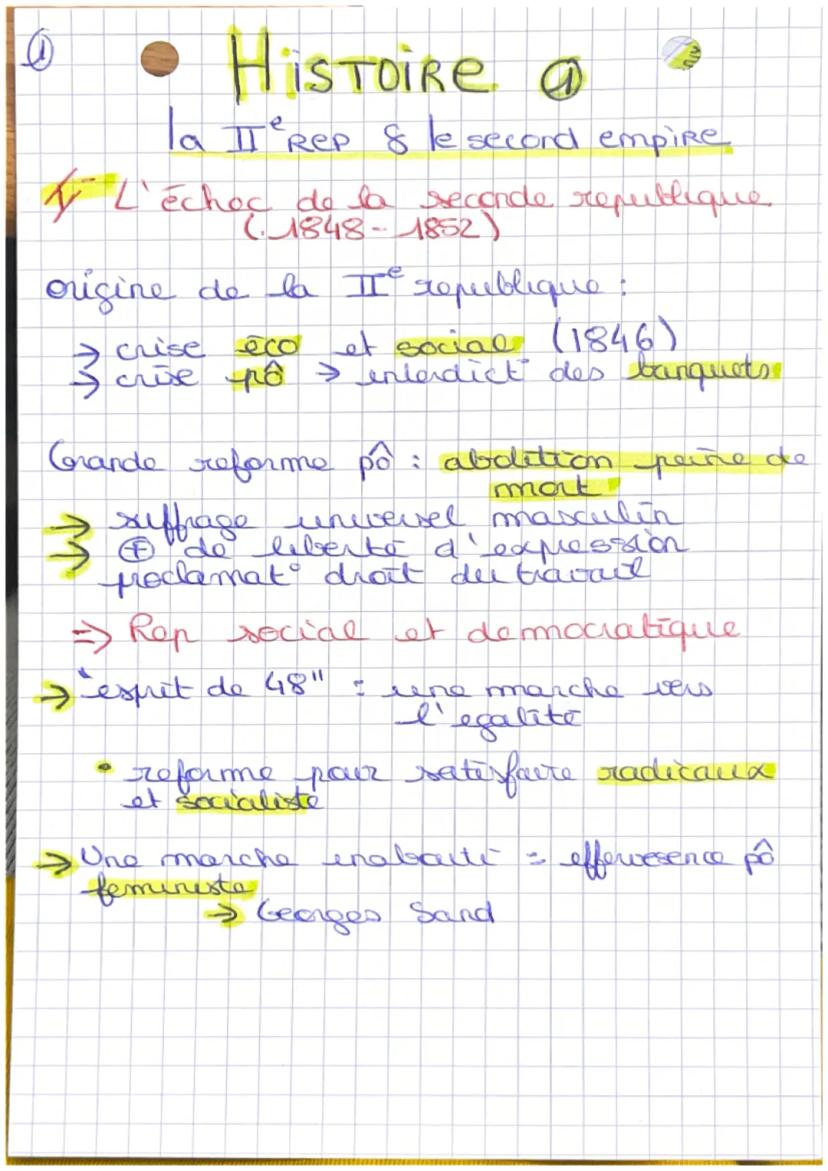 ①
HiSTOiRE ①
la IIe REP & le second empire
1/ L'échec de la seconde republique
(1848-1852)
origine de la IIe republique :
→ crise éco et social (1846)
→ crise pô → interdict° des banquets
Grande reforme pô : abolition peine de
mort
→ suffrage universel masculin
→ ⊕ de liberté d'expression
→ proclamat° droit du travail
=> Rep social et democratique
→ "esprit de 48" : une marche vers
l'egalité
• reforme pour satisfaire radicaux
et socialiste
→ Une marche = effervesence pô
feministe
→ Georges Sand